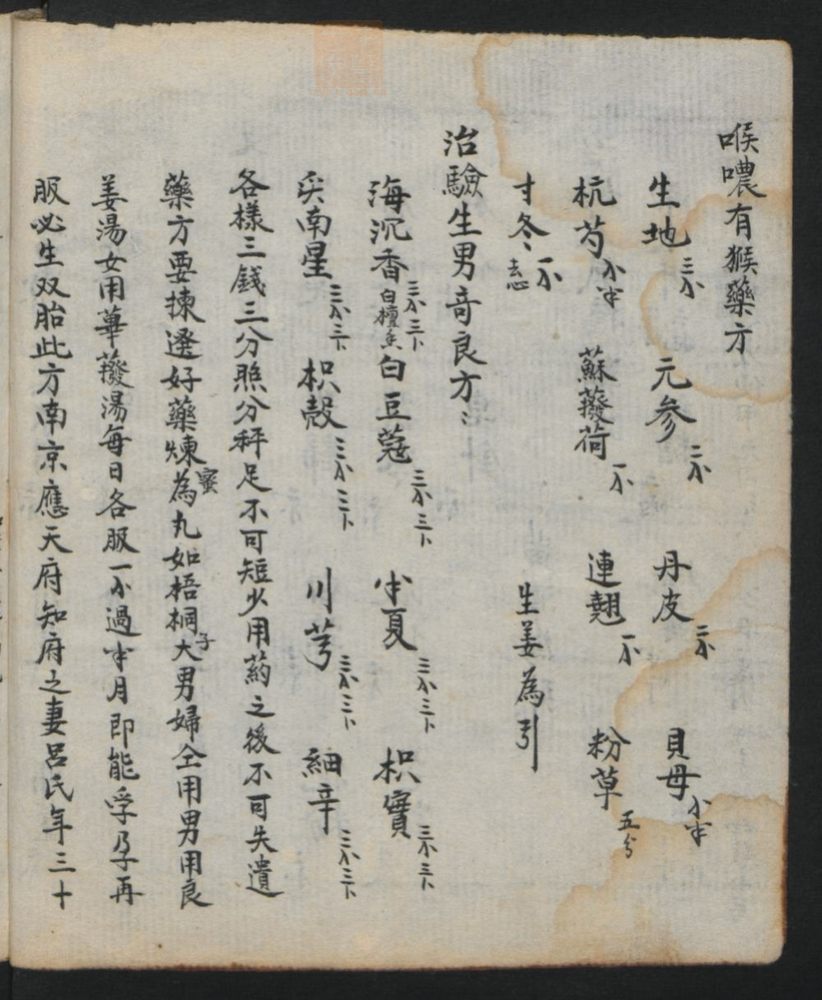 喉噥有猴藥方
生地三小 元参二小 丹皮二小 貝母小半
杭芍小半 蘇薐荷一小 連翹一小 粉草五分
寸冬一小去心 生姜為引
治驗生男奇良方
海沉香三小三卜 白檀香 白豆蔻三小三卜 半夏三小三卜 枳實三小三卜
尖南星三小三卜 枳殼三小三卜 川芎三小三卜 細辛三小三卜
各樣三錢三分照分秤足不可短少用药之後不可失遺
藥方要揀選好藥煉蜜為丸如梧桐子大男婦仝用男用良
姜湯女用蓽薐湯每日各服一小過半月即能孕乃子再
服必生双胎此方南京應天府知府之妻呂氏年三十